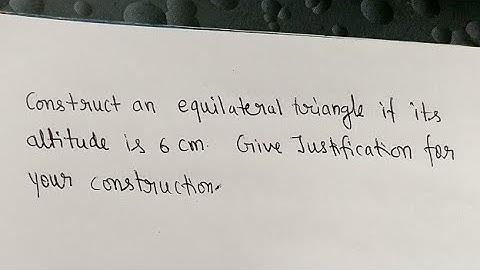 Construct an equilateral triangle if its
altitude is 6 cm. Give Justification for
your construction.